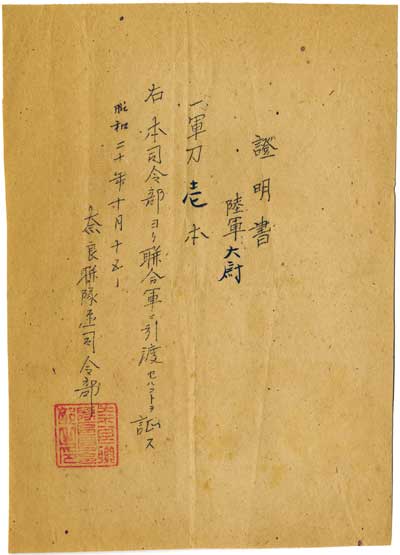 證明書
陸軍大尉
一軍刀壱本
右本司令部ヨリ聯合軍ニ引渡セルコトヲ証ス
昭和二十年十月十五
奈良聯隊區司令部